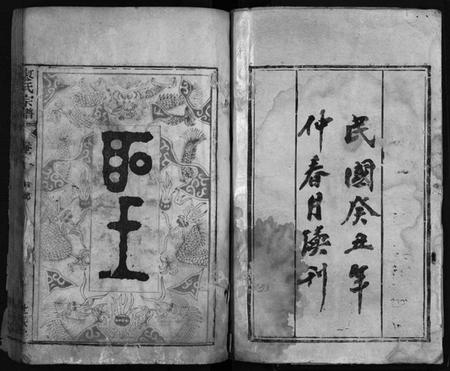 民國癸丑年
仲春月續刊
聖
氏宗譜